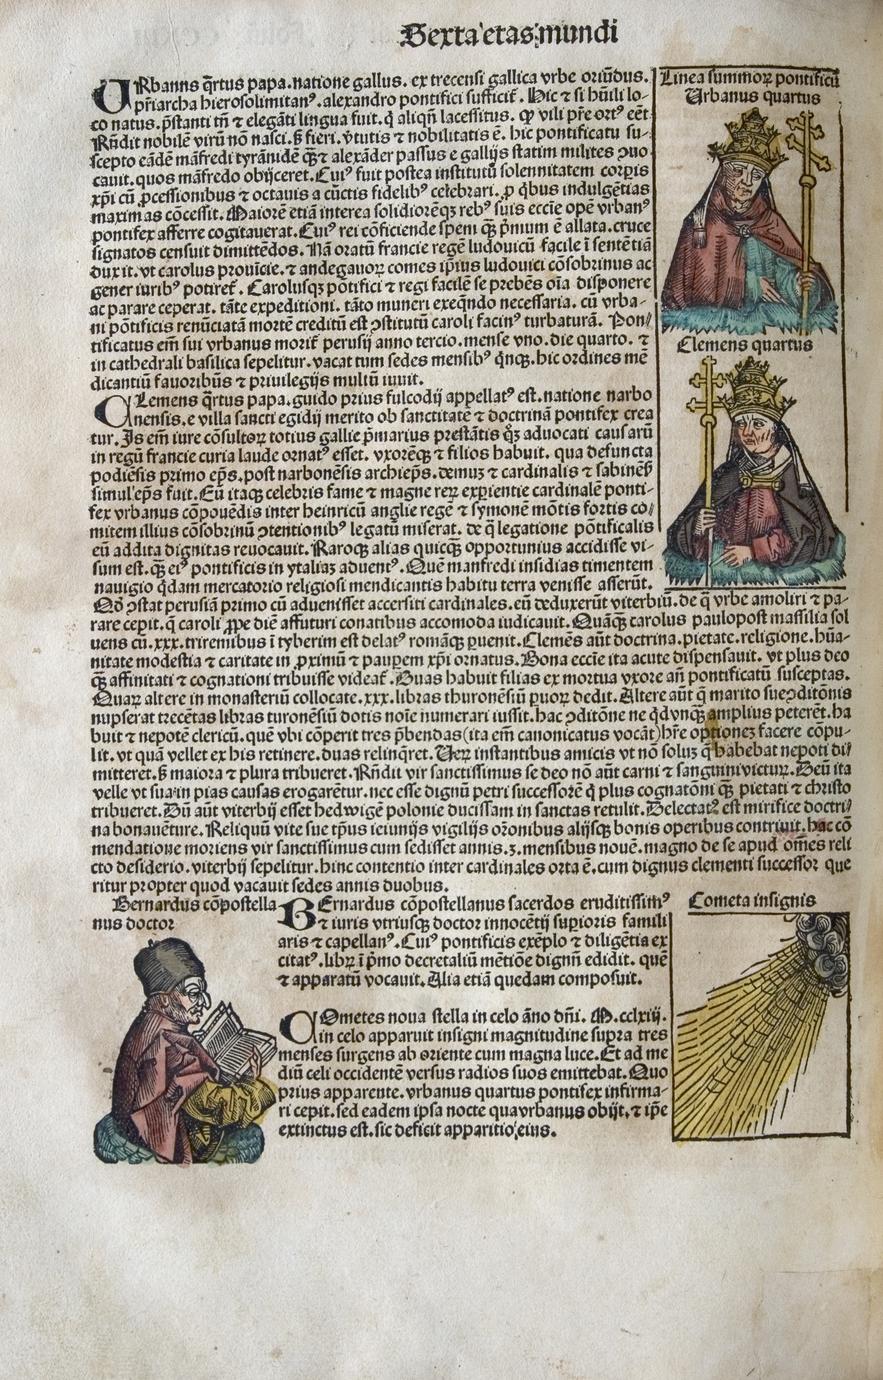 Sexta etas mundi
Linea summoꝝ pontificū
Urbanus quartus
URbanus q̄rtus papa. natione gallus. ex trecensi gallica vrbe oriūdus.
pr̄iarcha hierosolimitanꝰ. alexandro pontifici sufficit᷑. Hic ⁊ si hūili lo-
co natus. p̄stanti tn̄ ⁊ elegāti lingua fuit. q̇ aliqn̄ lacessitus. ꝙ vili pr̄e ortꝰ eēt
Rn̄dit nobilē virū nō nasci. ꝫ fieri. v̄tutis ⁊ nobilitatis ē. hic pontificatu su-
scepto eādē māfredi tyrānidē q̄ꝫ ⁊ alexāder passus e gallijs statim milites ↄuo
cauit. quos māfredo obijceret. Cuiꝰ fuit postea institutū solennitatem corꝑis
xp̄i cū ꝓcessionibus ⁊ octauis a cūctis fidelibꝰ celebrari. ꝓ q̇bus indulgētias
maximas cōcessit. Maiorē etiā interea solidiorēqꝫ rebꝰ suis eccīe opē vrbanꝰ
pontifex afferre cogitauerat. Cuiꝰ rei cōficiende spem q̄ꝫ p̄mium ē allata. cruce
signatos censuit dimittēdos. Nā oratū francie regē ludouicū facile ī sentētiā
duxit. vt carolus prouīcie. ⁊ andegauoꝝ comes ip̄ius ludouici cōsobrinus ac
gener iuribꝰ potiret᷑. Carolusqꝫ pōtifici ⁊ regi facilē se prebēs oīa disponere
ac parare ceperat. tāte expeditioni. tāto muneri exeq̄ndo necessaria. cū vrba-
ni pōtificis renūciatā mortē creditū est ↄstitutū caroli facinꝰ turbaturā. Pon
tificatus em̄ sui vrbanus morit᷑ perusij anno tercio. mense vno. die quarto. ⁊
in cathedrali basilica sepelitur. vacat tum sedes mensibꝰ q̇nqꝫ. hic ordines mē
dicantiū fauoribus ⁊ priuilegijs multū iuuit.
Clemens quartus
CLemens q̄rtus papa. guido prius fulcodij appellatꝰ est. natione narbo
nensis. e villa sancti egidij merito ob sanctitatē ⁊ doctrinā pontifex crea
tur. Is em̄ iure cōsultoꝝ totius gallie p̄marius prestātis q̄ꝫ aduocati causarū
in regū francie curia laude ornatꝰ esset. vxorēqꝫ ⁊ filios habuit. qua defuncta
podiēsis primo ep̄s. post narbonēsis archiep̄s. demuꝫ ⁊ cardinalis ⁊ sabinēs̄
simul ep̄s fuit. Eū itaqꝫ celebris fame ⁊ magne reꝝ exꝑientie cardinalē ponti-
fex vrbanus cōpouēdis inter heinricū anglie regē ⁊ symonē mōtis fortis co
mitem illius cōsobrinū ↄtentionibꝰ legatū miserat. de q̄ legatione pōtificalis
eū addita dignitas reuocauit. Raroqꝫ alias quicq̄ꝫ opportunius accidisse vi-
sum est. q̄ꝫ eiꝰ pontificis in ytaliaꝫ aduentꝰ. Quē manfredi insidias timentem
nauigio q̇dam mercatorio religiosi mendicantis habitu terra venisse asserūt.
Qđ ↄstat perusiā primo cū aduenisset accersiti cardinales. eū deduxerūt viterbiū. de q̄ vrbe amoliri ⁊ pa-
rare cepit. q̄ caroli ꝓpe diē affuturi conatibus accomoda iudicauit. Quāqꝫ carolus paulopost massilia sol
uens cū. xxx. triremibus ī tyberim est delatꝰ romāqꝫ ꝑuenit. Clemēs aūt doctrina. pietate. religione. hūa-
nitate modestia ⁊ caritate in ꝓximū ⁊ pauꝑem xp̄i ornatus. Bona eccīe ita acute dispensauit. vt plus deo
q̄ꝫ affinitati ⁊ cognationi tribuisse videat᷑. Duas habuit filias ex mortua vxore an̄ pontificatū susceptas.
Quaꝝ altere in monasteriū collocate. xxx. libras thuronēsiū ꝑuoꝝ dedit. Altere aūt q̄ marito sue ↄditōnis
nupserat trecētas libras turonēsiū dotis noīe numerari iussit. hac ↄditōne ne q̇dvnqꝫ amplius peteret. ha
buit ⁊ nepotē clericū. quē vbi cōperit tres p̄bendas (ita em̄ canonicatus vocāt) hr̄e optionez facere cōpu-
lit. vt quā vellet ex his retinere. duas relinq̄ret. Ueꝝ instantibus amicis vt nō soluꝫ q̄ habebat nepoti di
mitteret. ꝫ maiora ⁊ plura tribueret. Rn̄dit vir sanctissimus se deo nō aūt carni ⁊ sanguini victuꝝ. Deū ita
velle vt sua in pias causas erogarētur. nec esse dignū petri successorē q̇ plus cognatōni q̄ꝫ pietati ⁊ christo
tribueret. Dū aūt viterbij esset hedwigē polonie ducissam in sanctas retulit. Delectatꝰ est mirifice doctri
na bonauēture. Reliquū vite sue tp̄us ieiunijs vigilijs or̄onibus alijsqꝫ bonis operibus contriuit. hac cō
mendatione moriens vir sanctissimus cum sedisset annis. 3. mensibus nouē. magno de se apud om̄es reli
cto desiderio. viterbij sepelitur. hinc contentio inter cardinales orta ē. cum dignus clementi successor que
ritur propter quod vacauit sedes annis duobus.
Bernardus cōpostella
nus doctor
BErnardus cōpostellanus sacerdos eruditissimꝰ
⁊ iuris vtriusqꝫ doctor innocētij suꝑioris famili
aris ⁊ capellanꝰ. Cuiꝰ pontificis exēplo ⁊ diligētia ex
citatꝰ. libꝝ ī p̄mo decretaliū mētiōe dignū edidit. quē
⁊ apparatū vocauit. Alia etiā quedam composuit.
COmetes noua stella in celo āno dn̄i. M.cclxiij.
in celo apparuit insigni magnitudine suꝑa tres
menses surgens ab oriente cum magna luce. Et ad me
diū celi occidentē versus radios suos emittebat. Quo
prius apparente. vrbanus quartus pontifex infirma-
ri cepit. sed eadem ipsa nocte qua vrbanus obijt. ⁊ ip̄e
extinctus est. sic deficit apparitio eius.
Cometa insignis